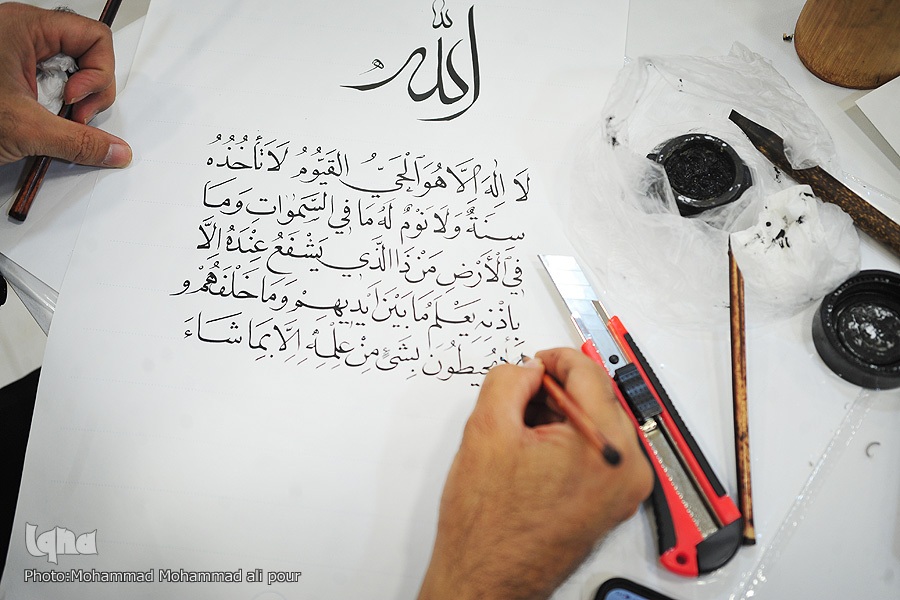 الله
لَا إِلٰهَ إِلَّا هُوَ ٱلْحَيُّ القَيُّومُ لَا تَأْخُذُهُ
سِنَةٌ وَلَا نَوْمٌ لَهُ مَا فِي السَّمٰوَاتِ وَمَا
فِي ٱلْأَرْضِ مَنْ ذَا الَّذِي يَشْفَعُ عِنْدَهُ إِلَّا
بِإِذْنِهِ يَعْلَمُ مَا بَيْنَ أَيْدِيهِمْ وَمَا خَلْفَهُمْ وَ
يُحِيطُونَ بِشَيْءٍ مِنْ عِلْمِهِ إِلَّا بِمَا شَاءَ
Iqna
Photo:Mohammad Mohammad ali pour